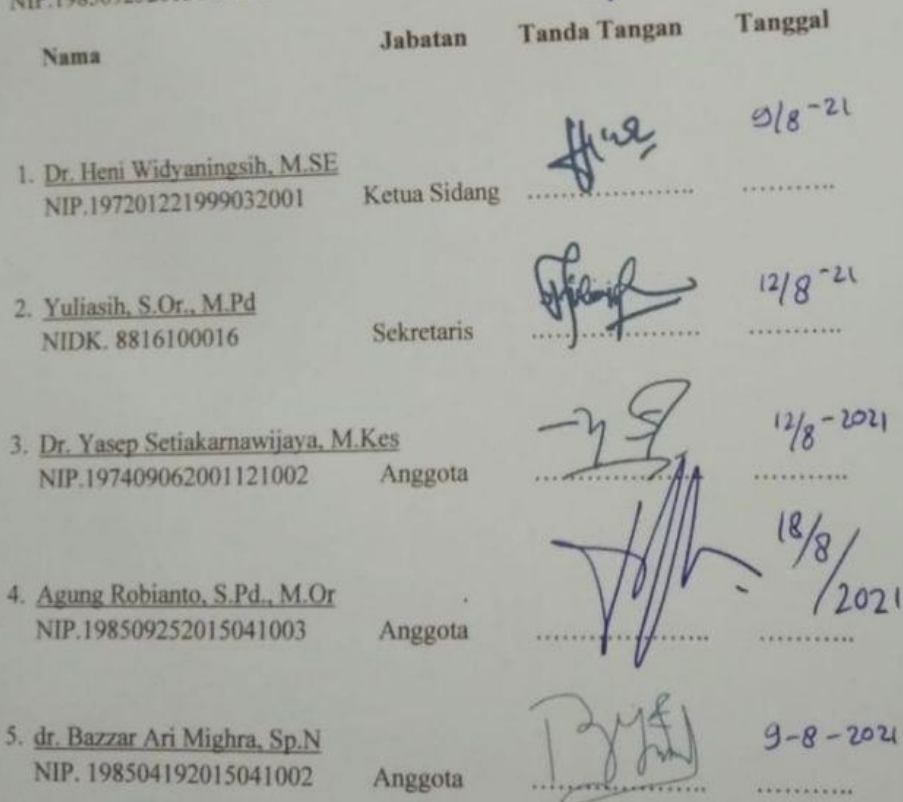 Nama Jabatan Tanda Tangan Tanggal
9/8-21
1. Dr. Heni Widyaningsih, M.SE
NIP.197201221999032001 Ketua Sidang ................... ...........
12/8-21
2. Yuliasih, S.Or., M.Pd
NIDK. 8816100016 Sekretaris ................... ...........
12/8-2021
3. Dr. Yasep Setiakarnawijaya, M.Kes
NIP.197409062001121002 Anggota ................... ...........
18/8/2021
4. Agung Robianto, S.Pd., M.Or
NIP.198509252015041003 Anggota ................... ...........
9-8-2021
5. dr. Bazzar Ari Mighra, Sp.N
NIP. 198504192015041002 Anggota ................... ...........